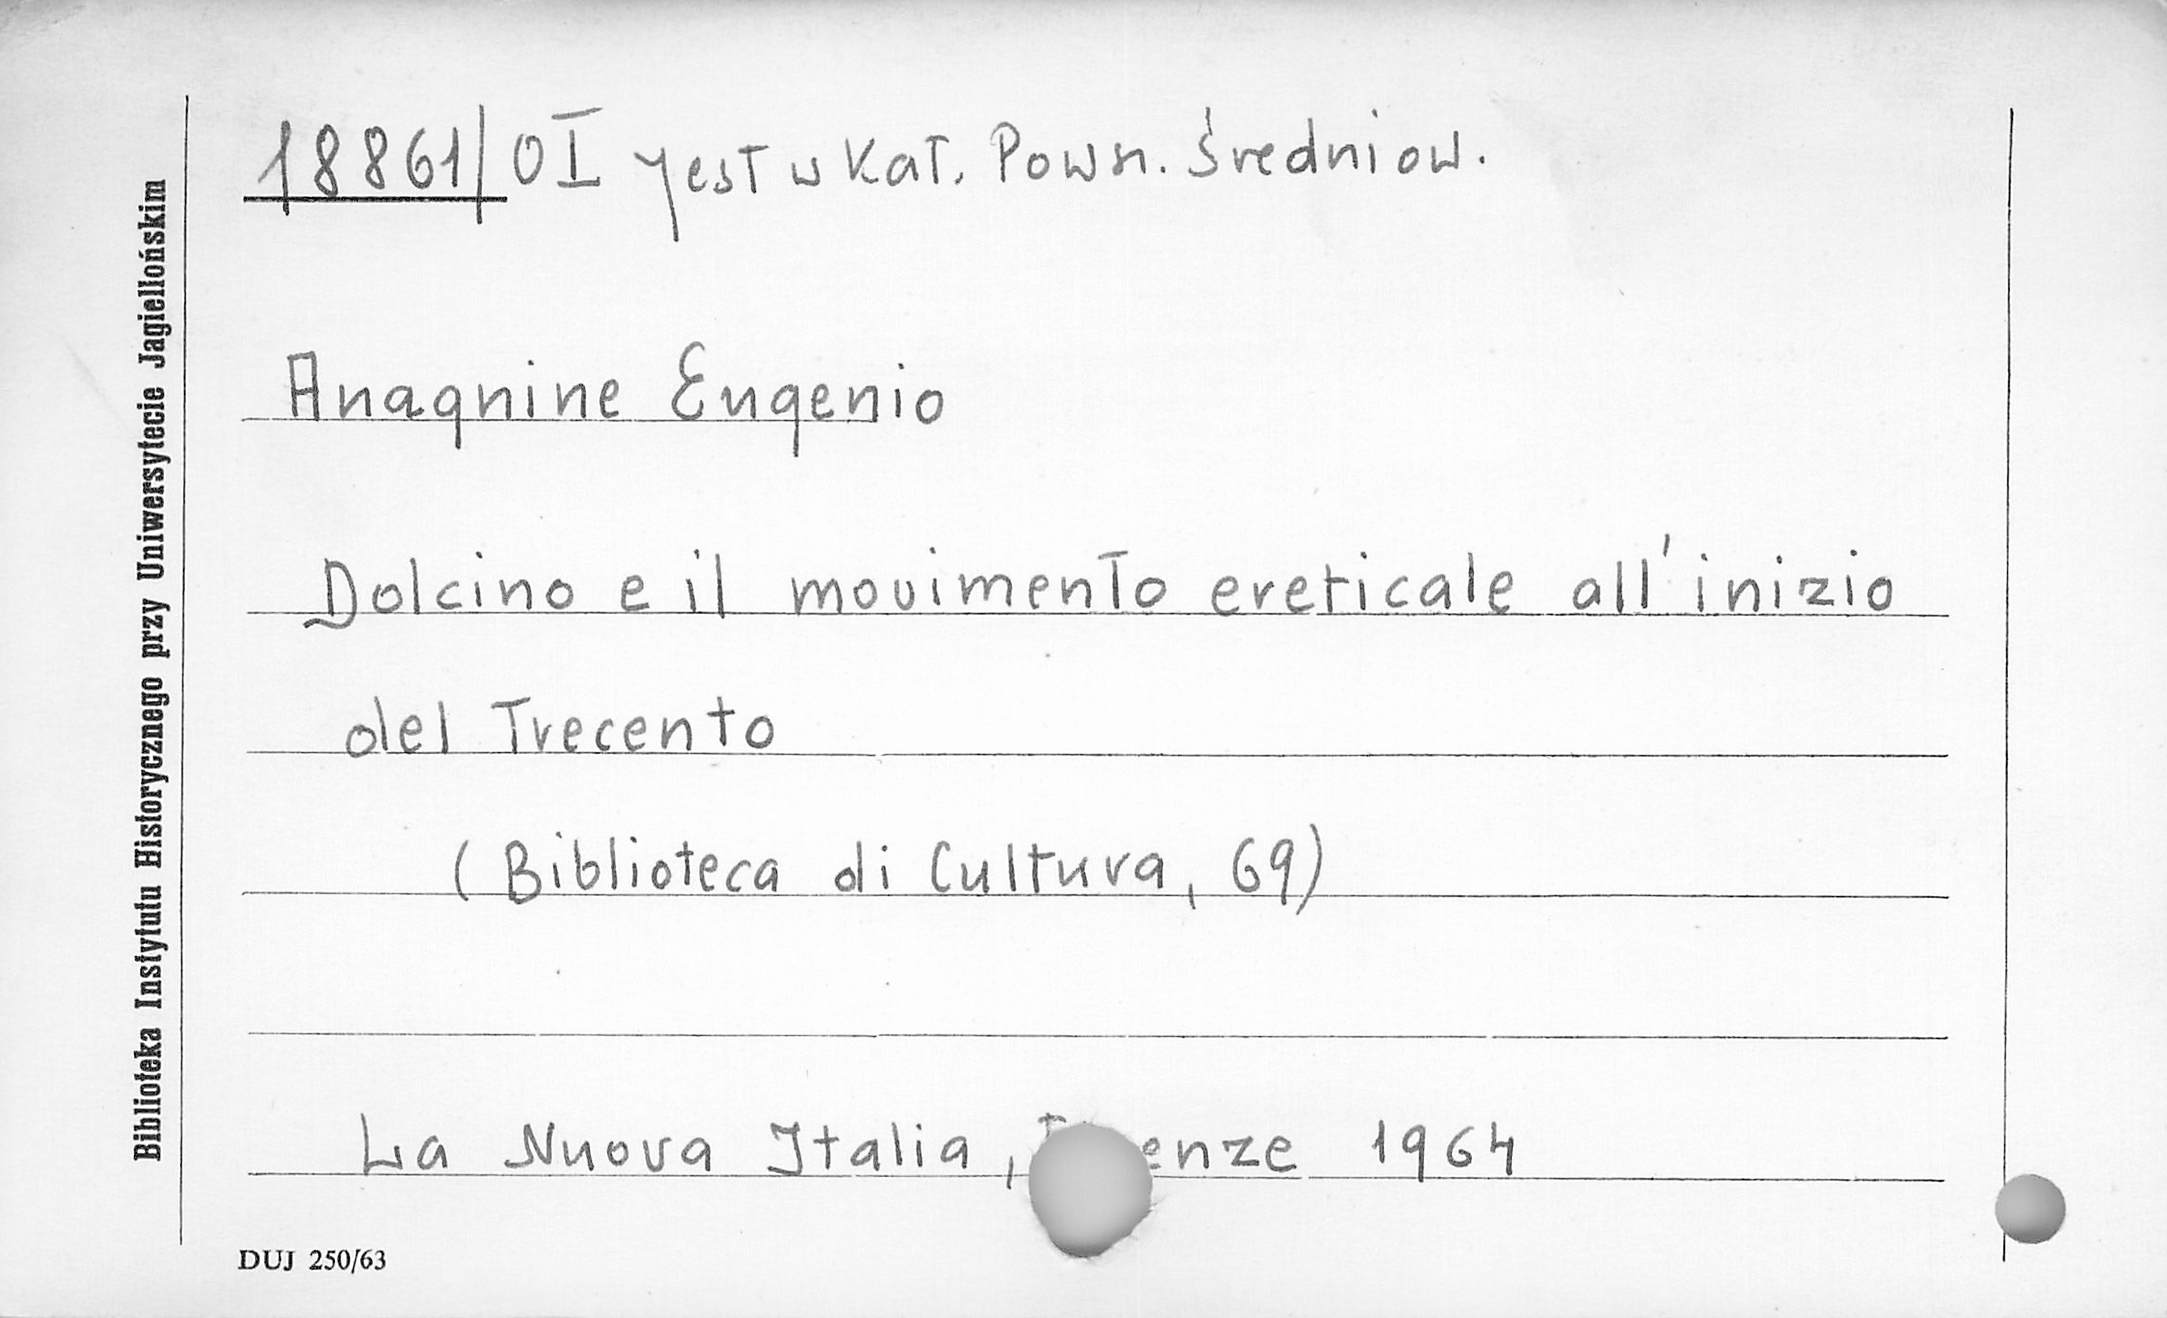 18861/OI Jest w Kat. Pown. Średniow.
Anagnine Eugenio
Dolcino e il movimento ereticale all'inizio
del Trecento
(Biblioteca di Cultura, 69)
La Nuova Italia, enze 1964
DUJ 250/63
Biblioteka Instytutu Historycznego przy Uniwersytecie Jagiellońskim